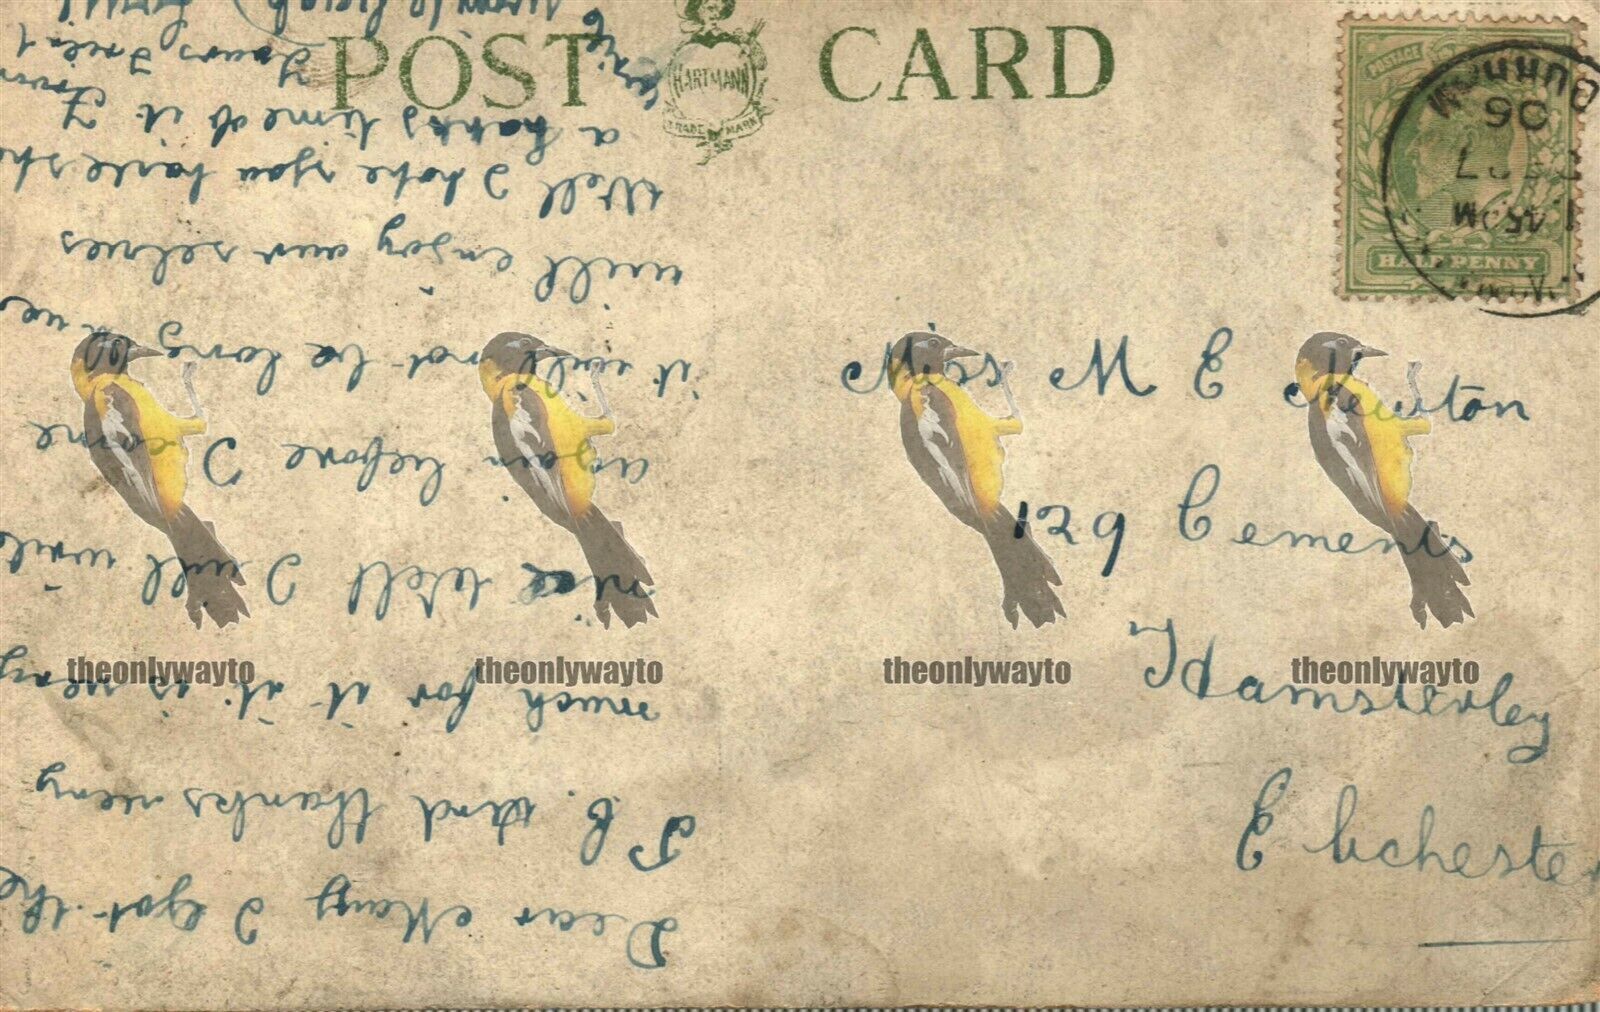 POST CARD
HARTMANN
TRADE MARK
POSTAGE
DURHAM
06
45 PM
HALF PENNY
Miss M E Newton
129 Cements
Hamsterley
Ebchester
Dear Mary I got the
P.C. and thanks very
much for it it is very
nice Well I will write
again before I come
it will not be long till we
will enjoy our selves
Well I hope you have
a good time of it From
Yours Friend
theonlywayto
theonlywayto
theonlywayto
theonlywayto